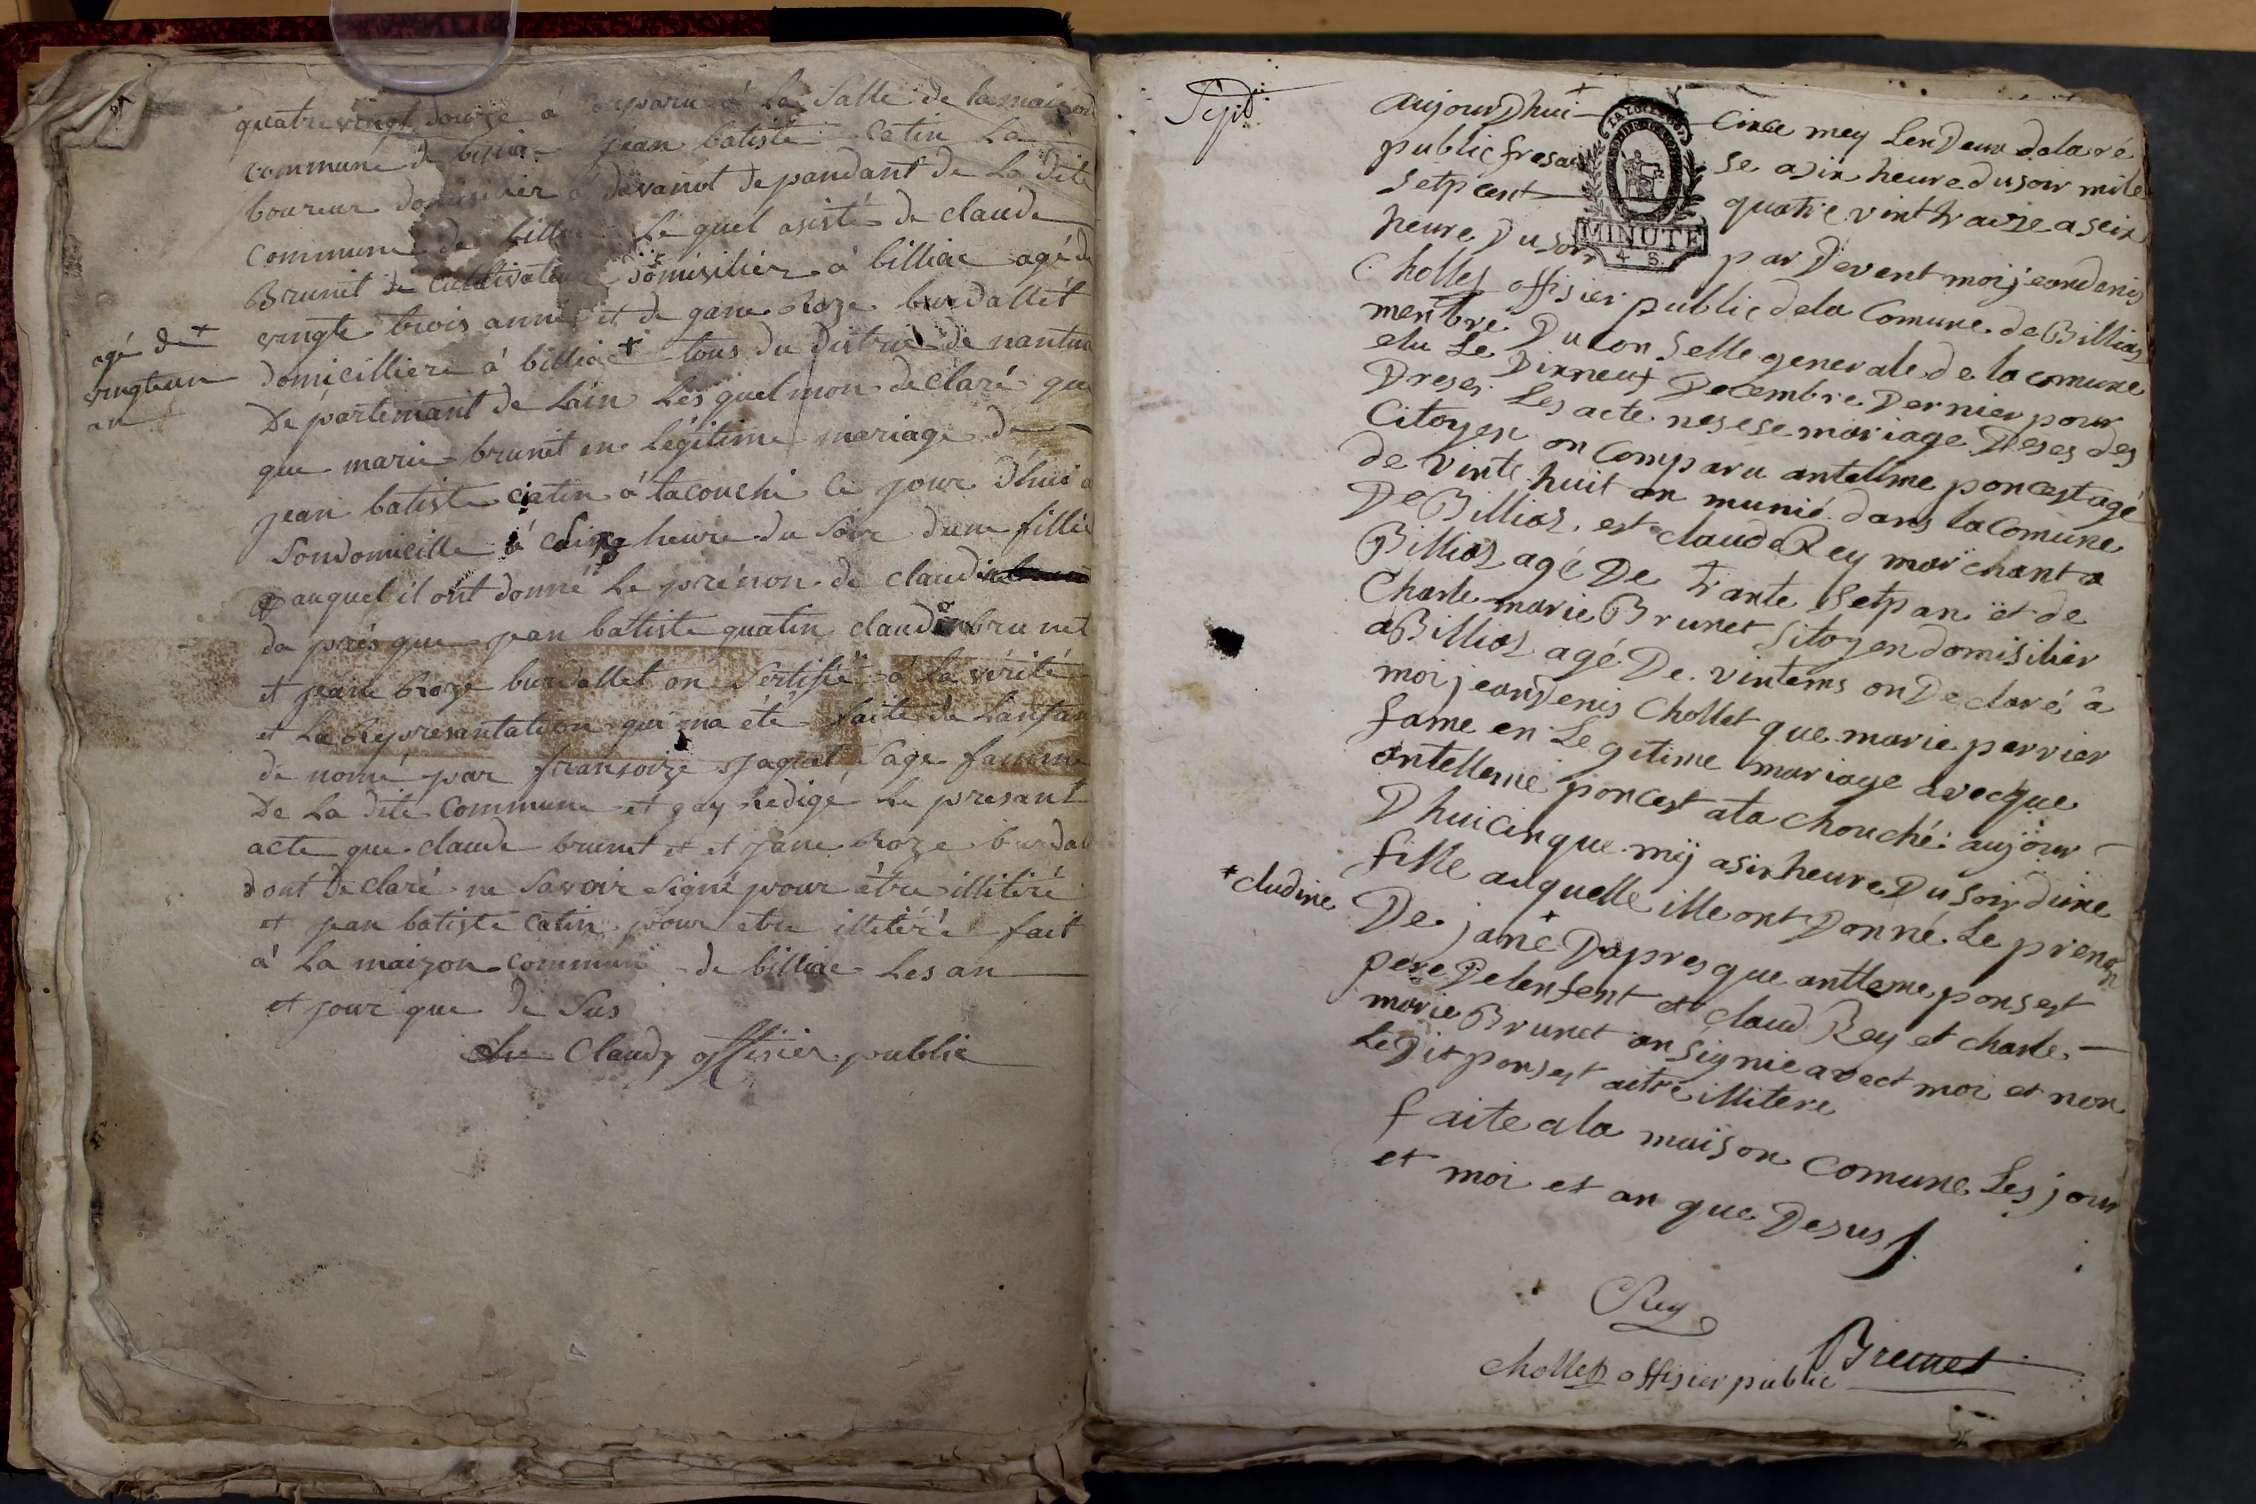 quatre vingt douze à comparu à la Salle de la maizon
commune de billia jean batiste Catin La
boureur domisilier à davanot depandant de La dite
commune de billia Le quel asisté de claude
Brunit de Cultivateur domisilier à billiac agé de
vingte trois année et de gane Roze burdallet
agé de +
vingteun
an
domicilliere à billiac + tous du distric de nantua
Départemant de Lain Les quel mon declaré que
que marie brunit en légitime mariage de
jean batiste catin à lacouché ce jour d'hui à
Sondomicille à cinq heure du Soir dune fillie
auquel il ont donné Le prénon de claudine
da prés que jean batiste quatin claude brunet
et jeane Roze burdallet on Sertifié à La vérité
et La Représantation qui ma été faite de Lanfan
de nomé par fransoize jaquet Sage famme
De La dite Commune et gay Redigé Le presant
acte que claude brunet et et jane Roze burdal
dont déclaré ne Savoir Signé pour être illitiré
et jean batiste Catin pour etre illitéré fait
à La maizon commune de billiac Les an
et jour que de Sus
Claudy offisier public
Aujourdhui + Cince mey Len Deux dela ré
public fransai se a six heure du soir mile
Setp cent quatre vint traize a seix
heure Du soir par Devent moi jean denis
MINUTE
4 S.
Chollet offisier public dela Comune de Billiaz
menbre Du Con Selle generale de la comune
elu Le Dixneuf Decembre Dernier pour
Dreser Les acte nesese mariage Deses des
Citoyen on Comparu antellme poncest agé
de vinte huit an munié dans la Comune
De Billiaz est claude Rey marchant a
Billiaz agé De trante Setp an et de
Charle marie Brunet Sitoyen domisilier
a Billiaz agé De vintems on Declaré â
moi jean Denis Chollet que marie perrier
fame en Legitime mariage avecque
antelleme poncest ata chouché aujour
Dhui cinque mÿ a six heure Du Soir dune
fille auquelle ille ont Donné Le prenon
+ cludine
De jane + Dapres que antleme ponsest
pere Delenfent et claud Rey et charle
marie Brunet on Signie avect moi et non
Le Dit ponsest aitre illitere
faite ala maison Comune Les jour
et moi et an que Desus
Rey
Chollet offisier public
Brunet